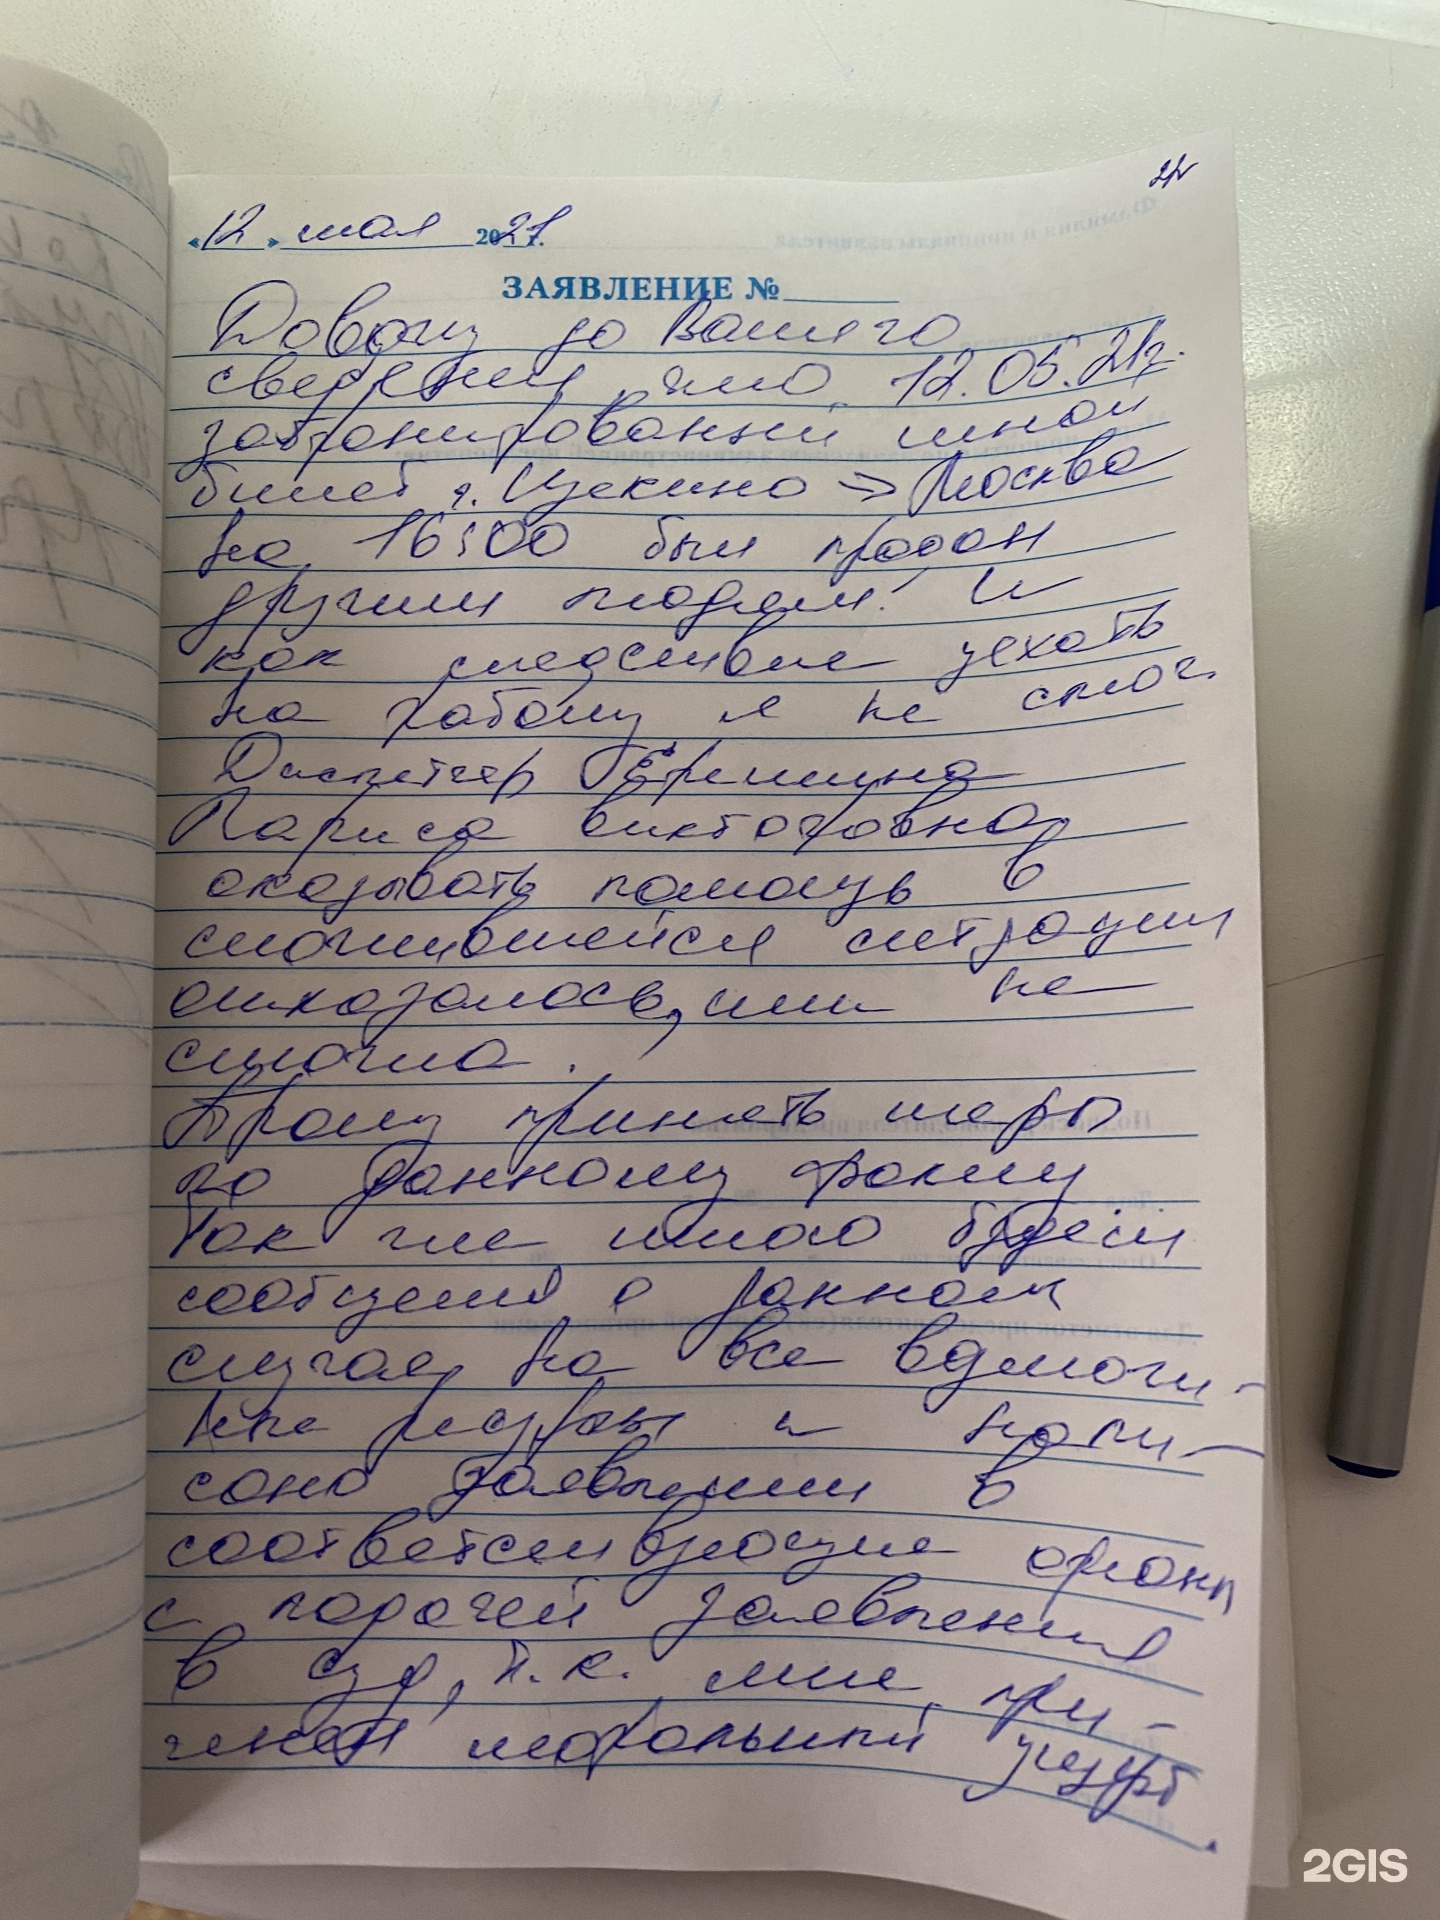 «12» мая 2021 г.
ЗАЯВЛЕНИЕ №
Довожу до Вашего
сведения, что 12.05.21г.
забронированный мной
билет г. Щекино → Москва
на 16:00 был продан
другим людям! И
как следствие уехать
на работу я не смог.
Диспетчер
Лариса Викторовна,
оказывать помощь в
сложившейся ситуации
отказалась, или не
смогла.
Прошу принять меры
по данному факту
Так же мною будет
сообщения о данном
случае, на все возможн-
ные ресурсы и напи-
сано заявлении в
соответствующие органы
с подачей заявления
в суд, т.к. мне при-
чинен моральный ущерб.
2GIS